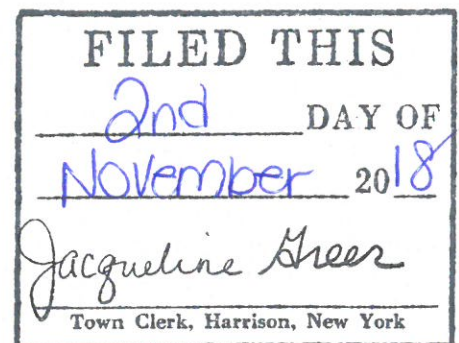 FILED THIS
2nd DAY OF
November 2018
Jacqueline Greer
Town Clerk, Harrison, New York